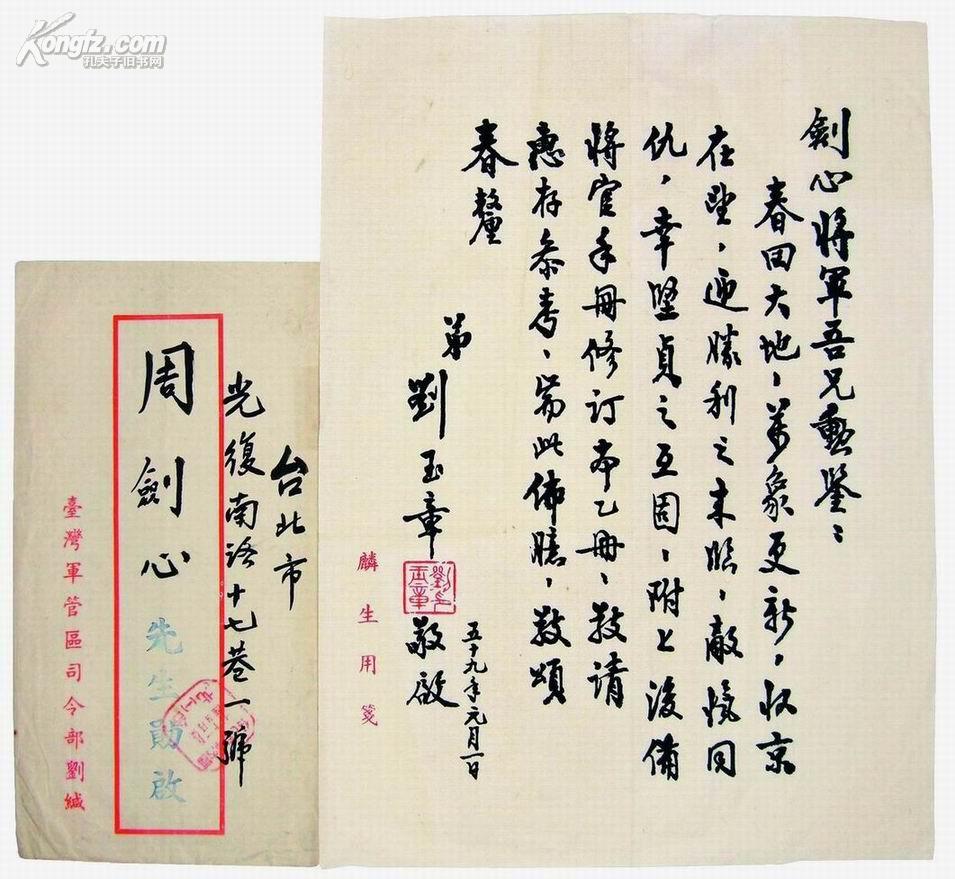 Kongfz.com
孔夫子旧书网
劍心將軍吾兄勳鑒：
春回大地、萬象更新，收京
在望，迎勝利之來臨，敵愾同
仇，幸堅貞之互固，附上後備
將官手冊修訂本乙冊，敬請
惠存參考，耑此佈臆，敬頌
春釐
弟劉玉章敬啟
五十九年元月一日
麟生用箋
台北市
光復南路十七巷一號
周劍心先生勛啟
臺灣軍管區司令部劉緘